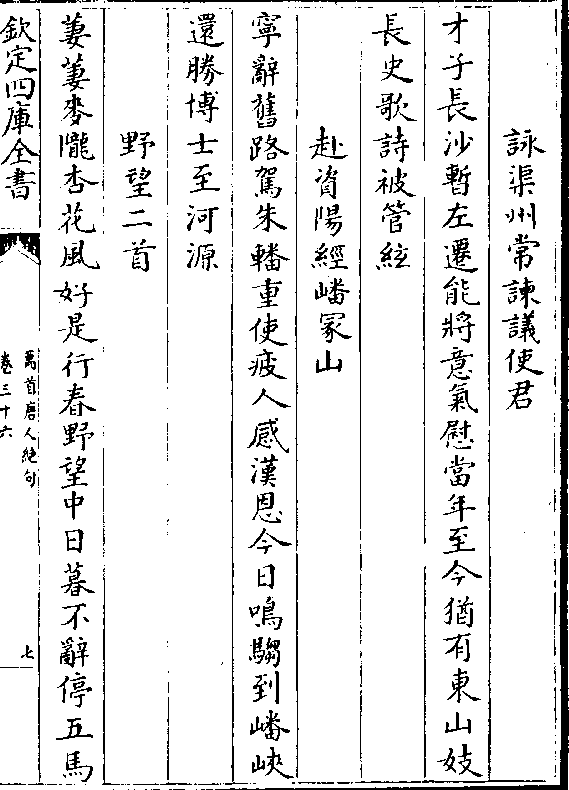 詠渠州常諫議使君
才子長沙暫左遷能將意氣慰當年至今猶有東山妓
長史歌詩被管絃
赴資陽經嶓冢山
寧辭舊路駕朱轓重使疲人感漢恩今日鳴騶到嶓峽
還勝博士至河源
野望二首
萋萋麥隴杏花風好是行春野望中日暮不辭停五馬
欽定四庫全書
萬首唐人絶句
卷三十六
七